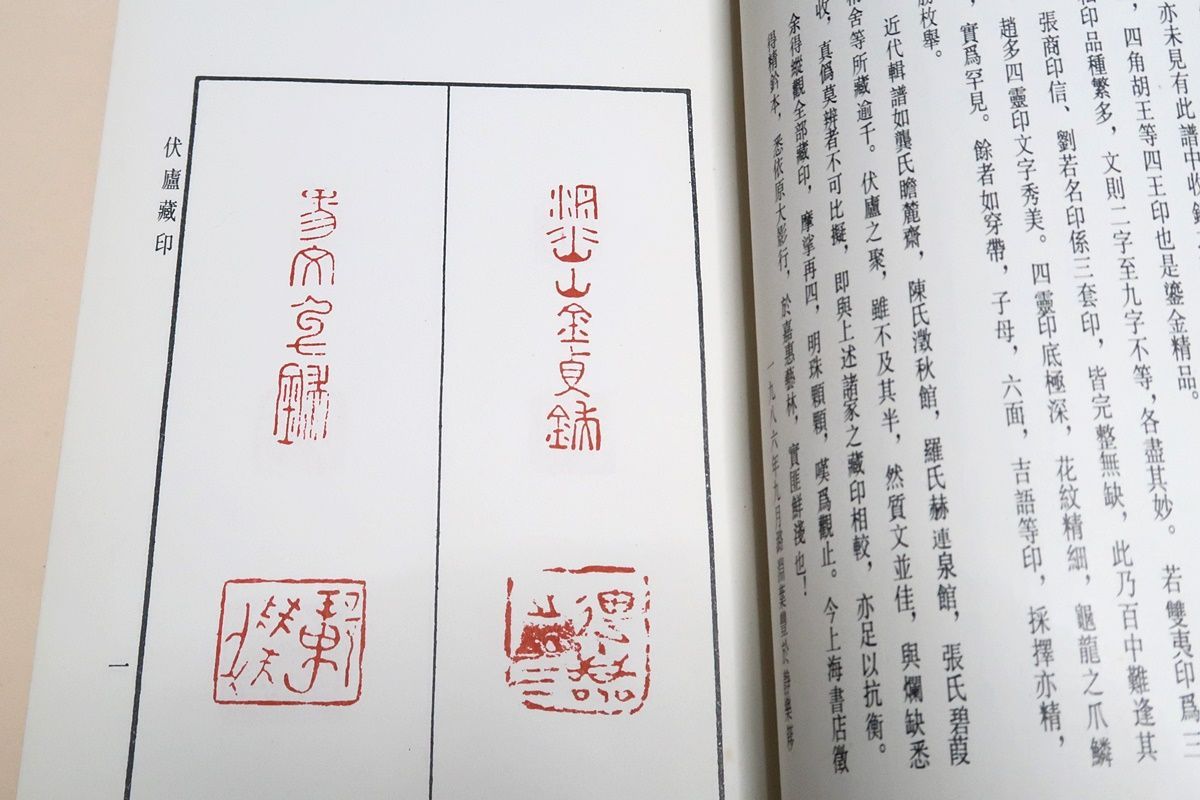 亦未見有此譜中收錄
，四角胡王等四王印也是鎏金精品。若雙夷印爲三
印品種繁多，文則二字至九字不等，各盡其妙。
張商印信、劉若名印係三套印，皆完整無缺，此乃百中難逢其
趙多四靈印文字秀美。四靈印底極深，花紋精細，龜龍之爪鱗
，實爲罕見。餘者如穿帶，子母，六面，吉語等印，採擇亦精，
勝枚舉。
近代輯譜如龔氏瞻麓齋，陳氏澂秋館，羅氏赫連泉館，張氏碧葭
精舍等所藏逾千。伏廬之聚，雖不及其半，然質文並佳，與爛缺悉
收，真僞莫辨者不可比擬，即與上述諸家之藏印相較，亦足以抗衡。
余得縱觀全部藏印，摩挲再四，明珠顆顆，嘆爲觀止。今上海書店徵
得精鈐本，悉依原大影行，於嘉惠藝林，實匪鮮淺也！
一九八六年九月
伏廬藏印
一